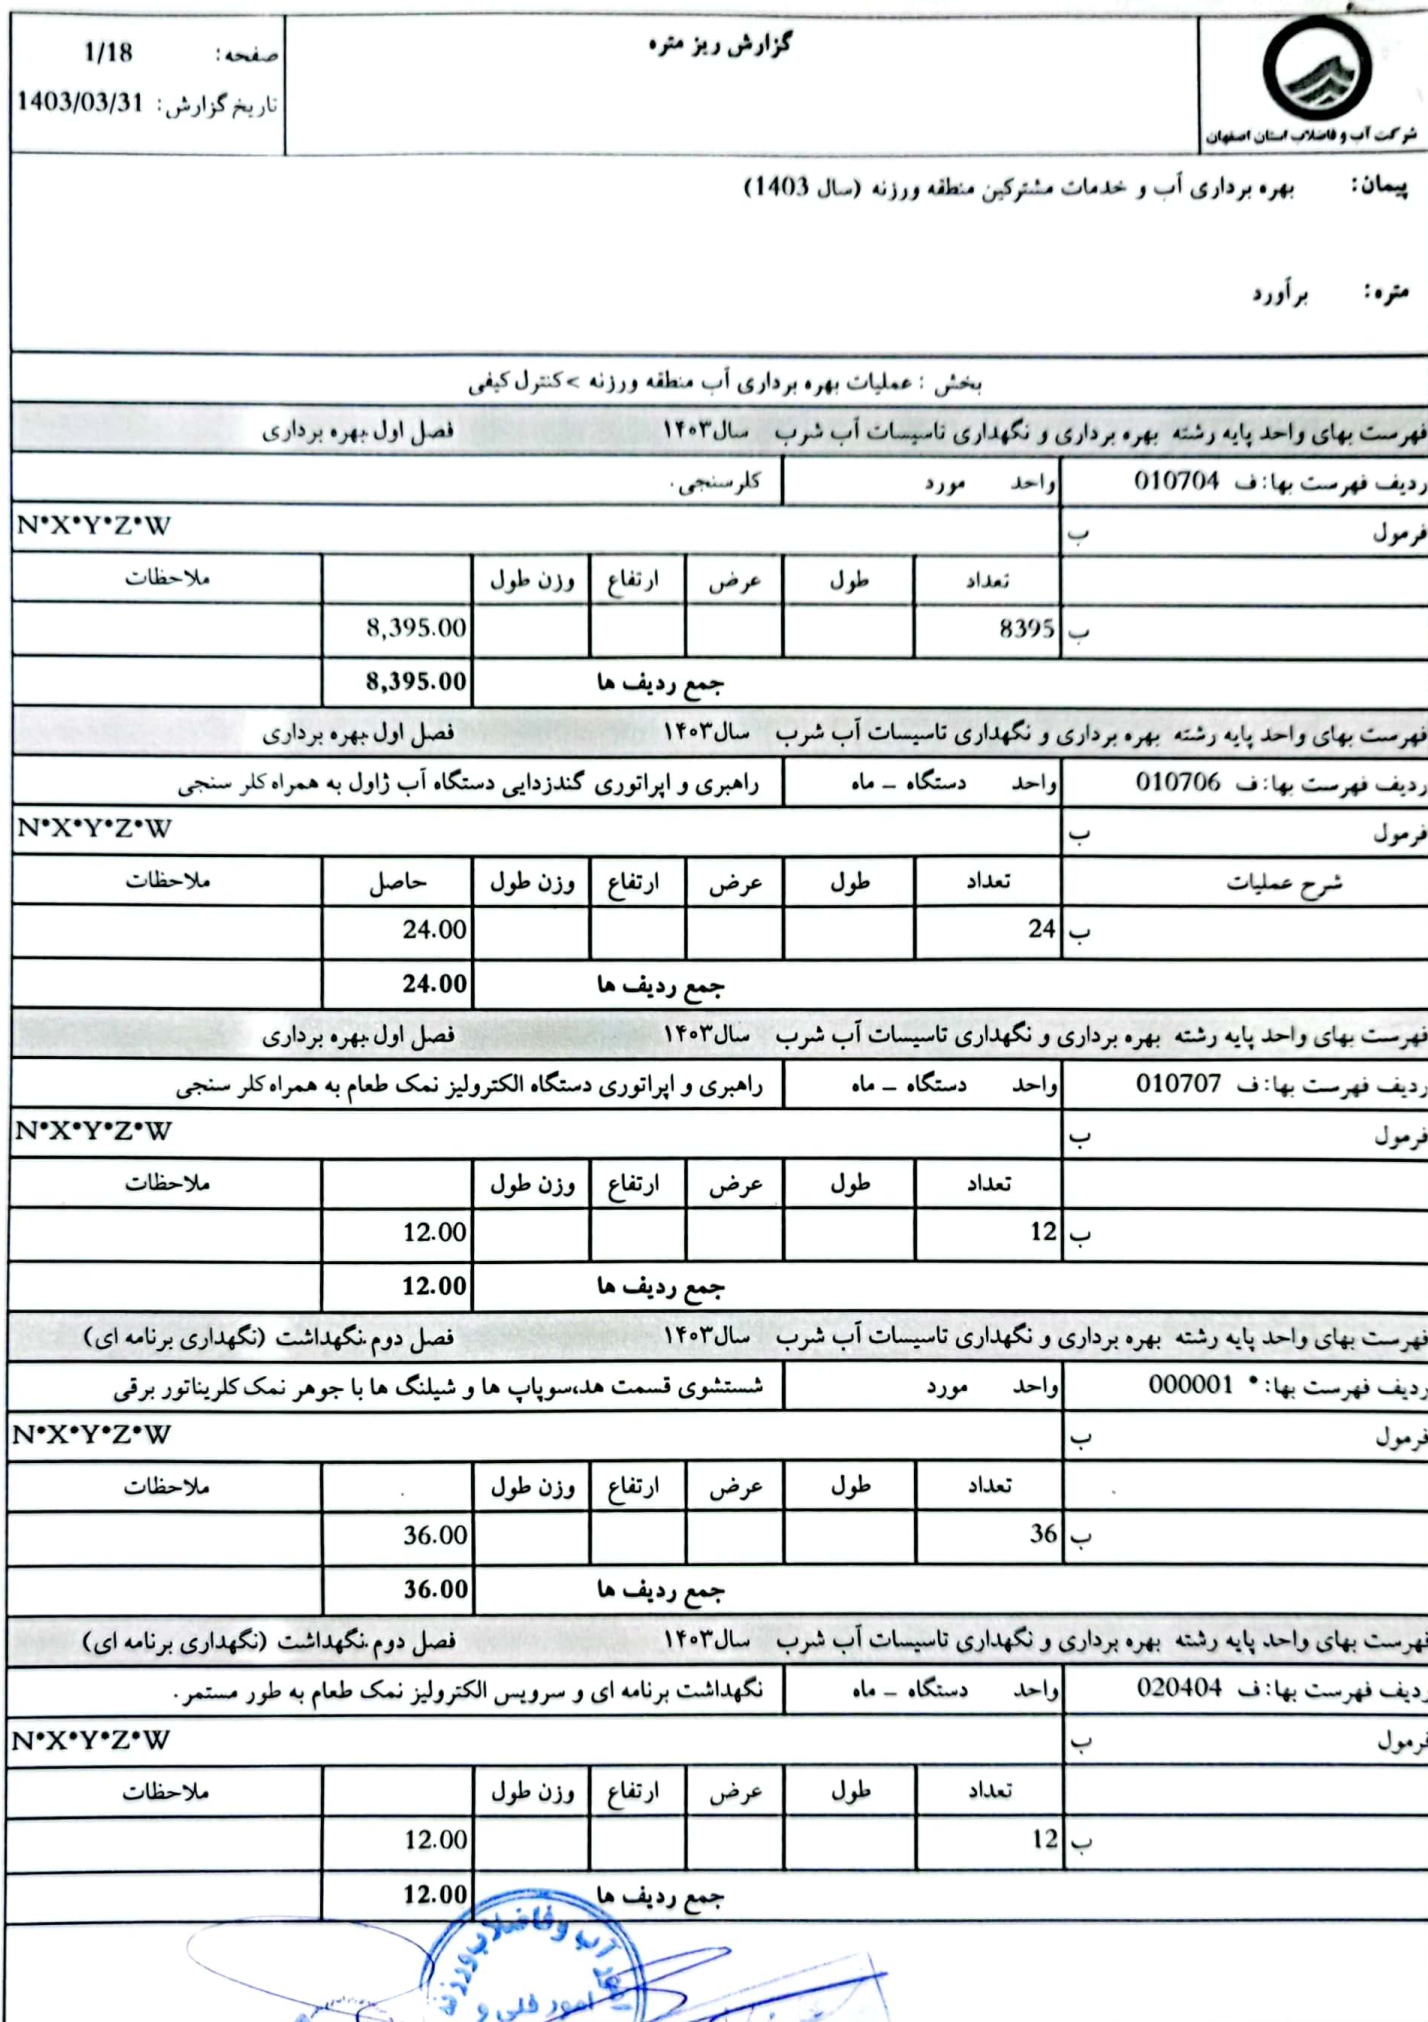 گزارش ریز متره
صفحه: 1/18
تاریخ گزارش: 1403/03/31
شرکت آب و فاضلاب استان اصفهان
پیمان: بهره برداری آب و خدمات مشترکین منطقه ورزنه (سال 1403)
متره: برآورد
بخش : عملیات بهره برداری آب منطقه ورزنه >کنترل کیفی
فهرست بهای واحد پایه رشته بهره برداری و نگهداری تاسیسات آب شرب سال۱۴۰۳ فصل اول.بهره برداری
ردیف فهرست بها: ف 010704 واحد مورد کلرسنجی.
فرمول ب N*X*Y*Z*W
تعداد طول عرض ارتفاع وزن طول ملاحظات
ب 8395 8,395.00
جمع ردیف ها 8,395.00
فهرست بهای واحد پایه رشته بهره برداری و نگهداری تاسیسات آب شرب سال۱۴۰۳ فصل اول.بهره برداری
ردیف فهرست بها: ف 010706 واحد دستگاه - ماه راهبری و اپراتوری گندزدایی دستگاه آب ژاول به همراه کلر سنجی
فرمول ب N*X*Y*Z*W
شرح عملیات تعداد طول عرض ارتفاع وزن طول حاصل ملاحظات
ب 24 24.00
جمع ردیف ها 24.00
فهرست بهای واحد پایه رشته بهره برداری و نگهداری تاسیسات آب شرب سال۱۴۰۳ فصل اول.بهره برداری
ردیف فهرست بها: ف 010707 واحد دستگاه - ماه راهبری و اپراتوری دستگاه الکترولیز نمک طعام به همراه کلر سنجی
فرمول ب N*X*Y*Z*W
تعداد طول عرض ارتفاع وزن طول ملاحظات
ب 12 12.00
جمع ردیف ها 12.00
فهرست بهای واحد پایه رشته بهره برداری و نگهداری تاسیسات آب شرب سال۱۴۰۳ فصل دوم.نگهداشت (نگهداری برنامه ای)
ردیف فهرست بها: * 000001 واحد مورد شستشوی قسمت هد،سوپاپ ها و شیلنگ ها با جوهر نمک کلریناتور برقی
فرمول ب N*X*Y*Z*W
تعداد طول عرض ارتفاع وزن طول ملاحظات
ب 36 36.00
جمع ردیف ها 36.00
فهرست بهای واحد پایه رشته بهره برداری و نگهداری تاسیسات آب شرب سال۱۴۰۳ فصل دوم.نگهداشت (نگهداری برنامه ای)
ردیف فهرست بها: ف 020404 واحد دستگاه - ماه نگهداشت برنامه ای و سرویس الکترولیز نمک طعام به طور مستمر.
فرمول ب N*X*Y*Z*W
تعداد طول عرض ارتفاع وزن طول ملاحظات
ب 12 12.00
جمع ردیف ها 12.00
امور آب و فاضلاب ورزنه
امور فنی و